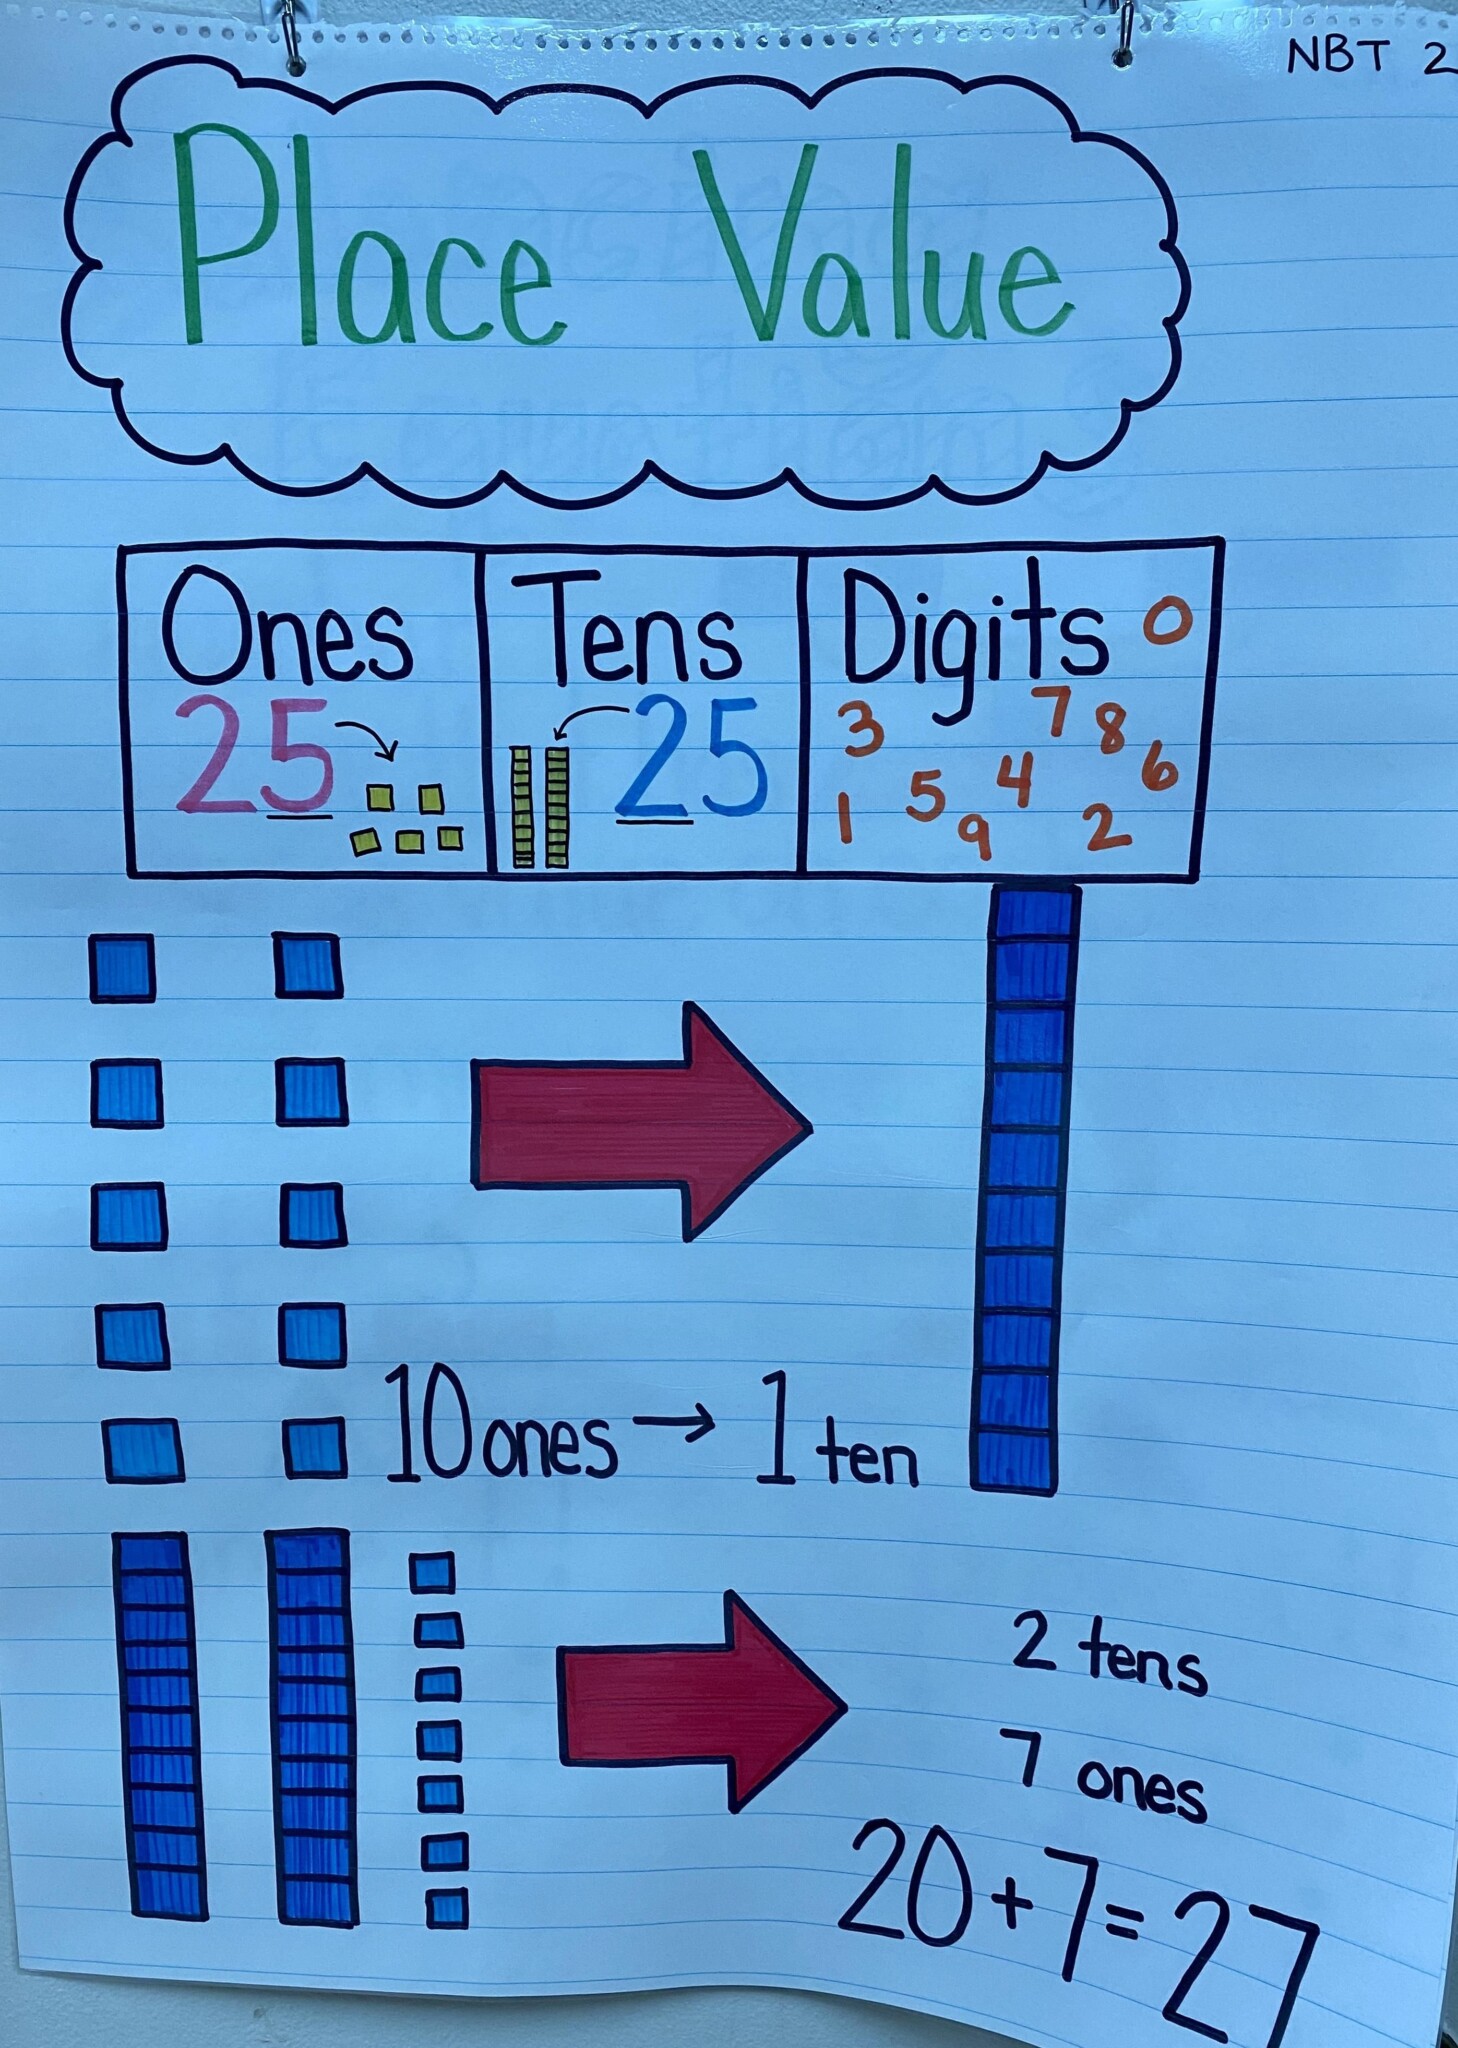 NBT 2
Place Value
Ones
25
Tens
25
Digits 0
3 7 8
1 5 4 6
9 2
10 ones → 1 ten
2 tens
7 ones
20+7=27